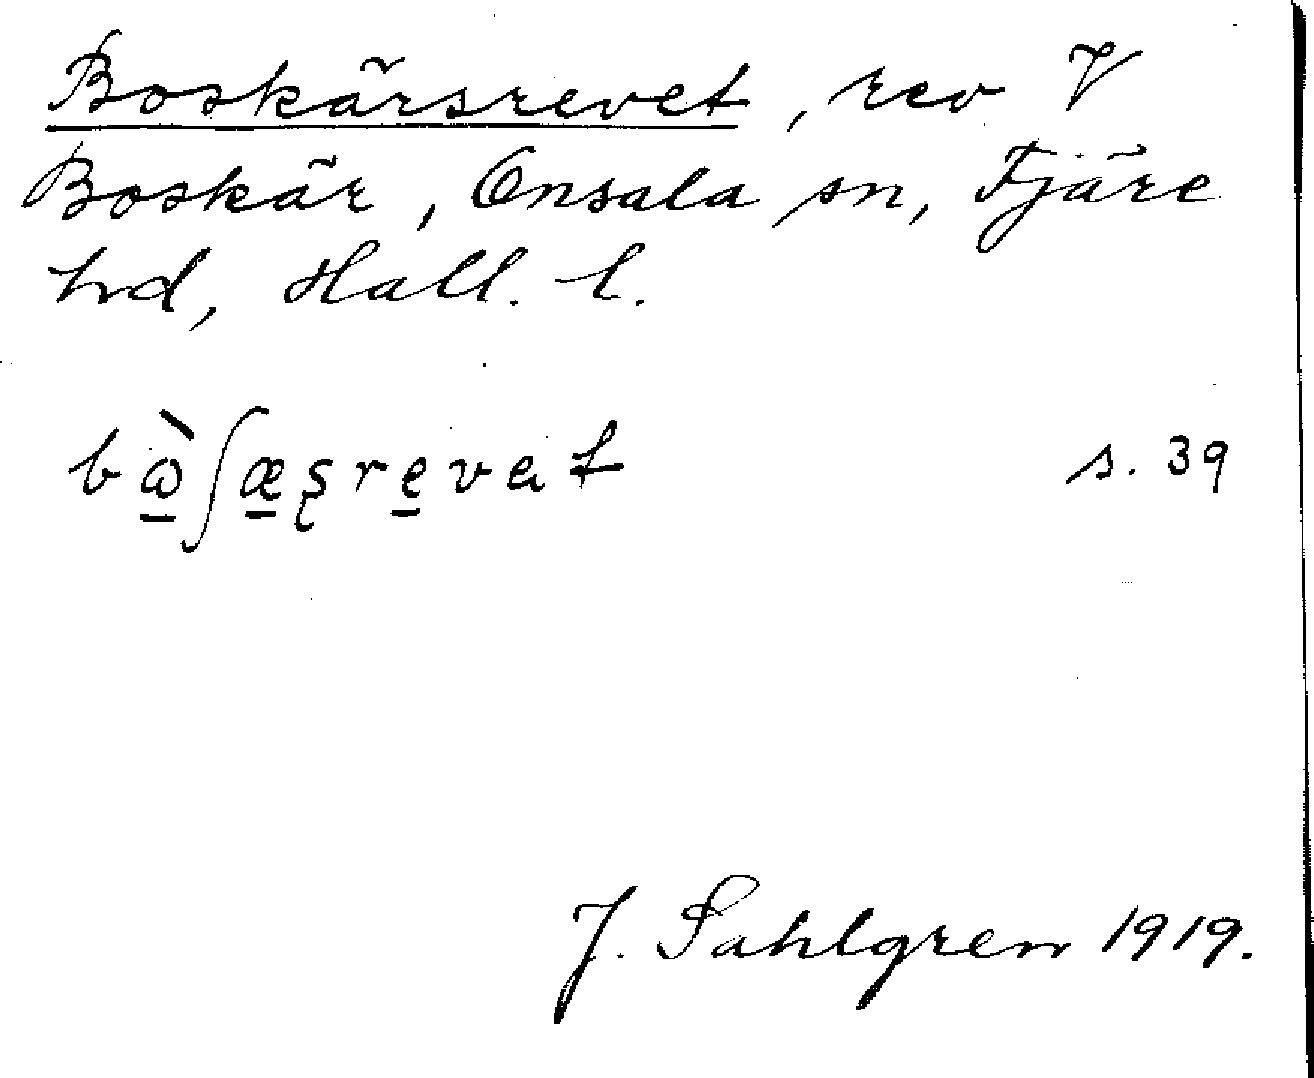 Boskärsrevet, rev V
Boskär, Onsala sn, Fjäre
hd, Hall. l.
bὼ̱ʃæ̱ʂre̱vət s. 39
J. Sahlgren 1919.